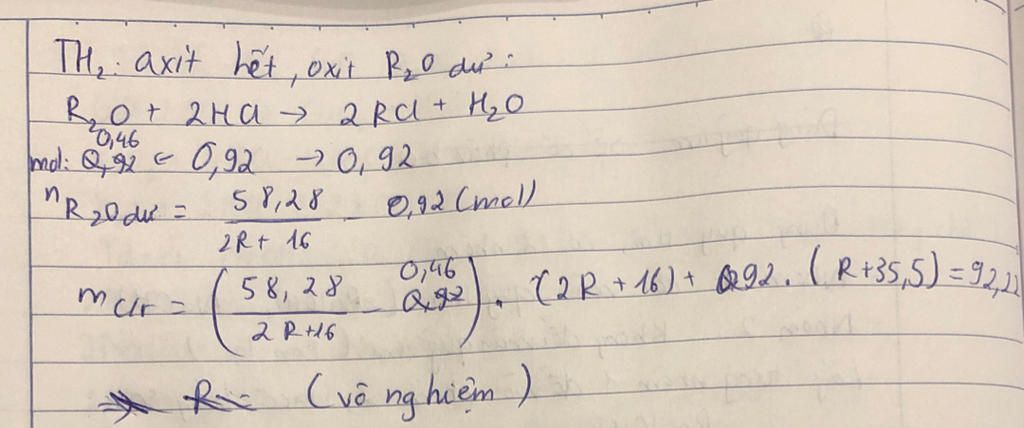 TH₂: axit hết, oxit R₂O dư:
R₂O + 2HCl → 2RCl + H₂O
0,46
mol: 0,92 ← 0,92 → 0,92
n R₂O dư = 58,28 / (2R + 16) - 0,92 (mol)
m c/r = (58,28 / (2R+16) - 0,46 0,92) . (2R + 16) + 0,92 . (R+35,5) = 92,22
⇒ R = (vô nghiệm)